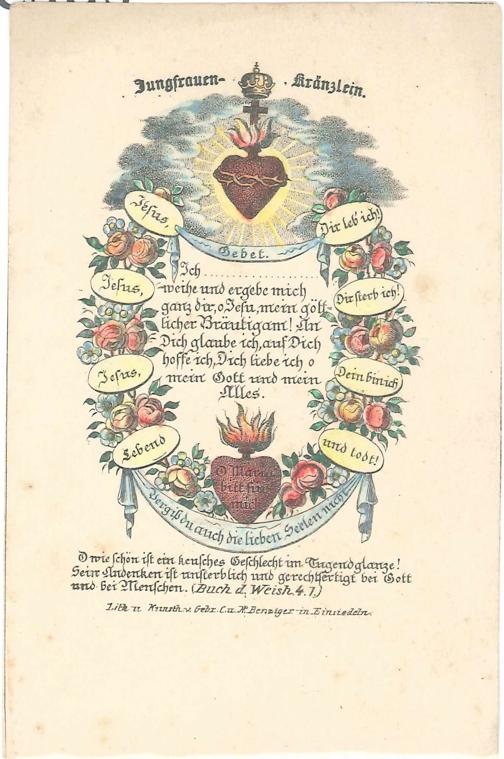 Jungfrauen- Kränzlein.
Jesus, Dir leb ich!
Gebet.
Ich
Jesus, weihe und ergebe mich Dir sterb ich!
ganz dir, o Jesu, mein gött-
licher Bräutigam! An
Dich glaube ich, auf Dich
hoffe ich, Dich liebe ich o
Jesus, mein Gott und mein Dein bin ich
Alles.
Lebend und todt!
O Maria
bitt für
mich
Vergiß du auch die lieben Seelen nicht
O wie schön ist ein keusches Geschlecht im Tugendglanze!
Sein Andenken ist unsterblich und gerechtfertigt bei Gott
und bei Menschen. (Buch d. Weish. 4. 1.)
Lith u Kunsth. v. Gebr. C. u. N. Benziger in Einsiedeln.